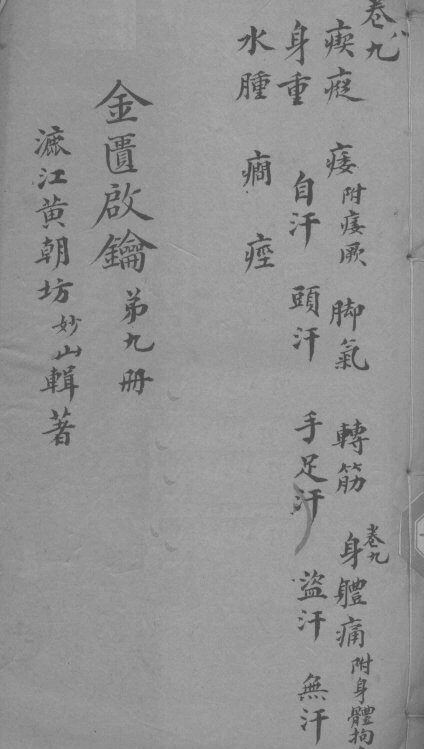 卷九
瘈瘲 痿附痿厥 脚氣 轉筋 卷九 身體痛附身體拘
身重 自汗 頭汗 手足汗 盗汗 無汗
水腫 癇 痙
金匱啟鑰 弟九册
漉江黄朝坊妙山輯著